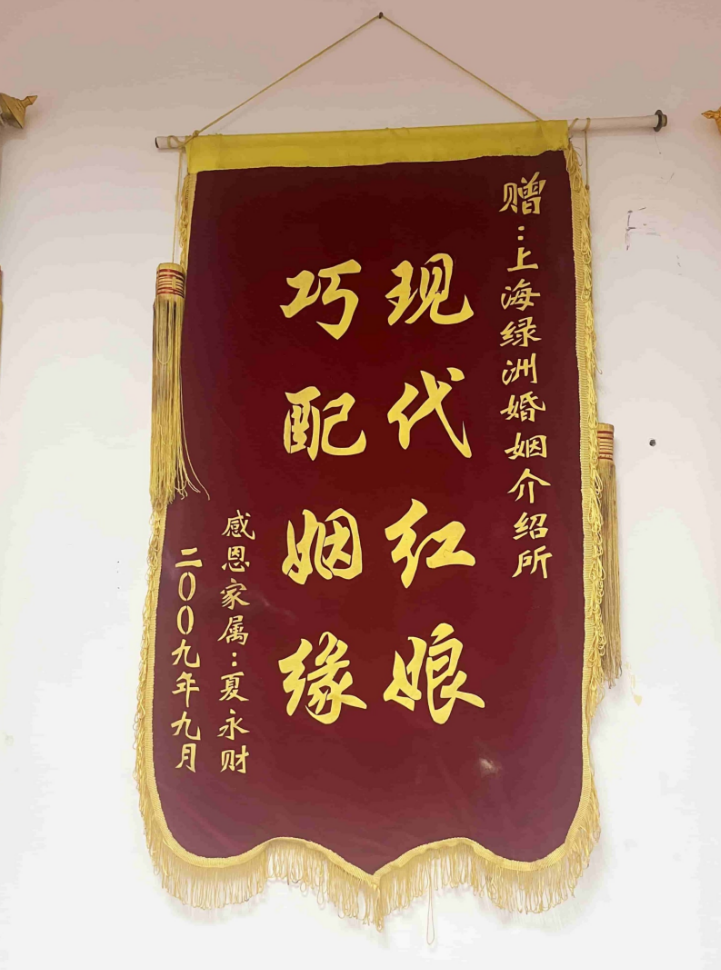 赠:上海绿洲婚姻介绍所
现代红娘
巧配姻缘
感恩家属:夏永财
二00九年九月